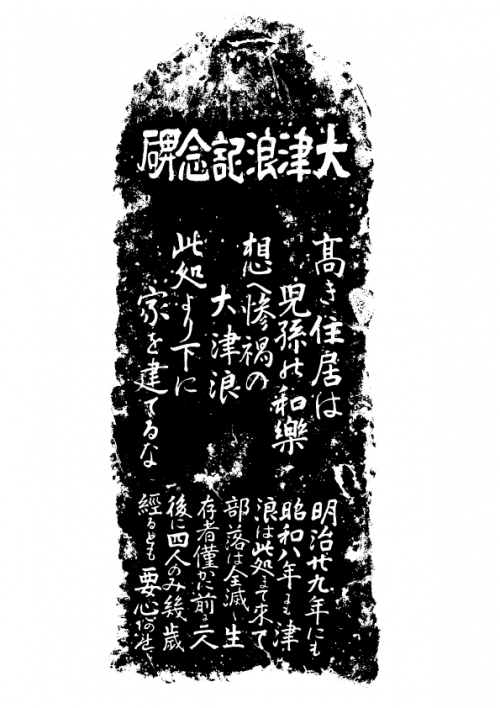 大津浪記念碑
髙き住居は
児孫の和樂
想へ惨禍の
大津浪
此処より下に
家を建てるな
明治廿九年にも
昭和八年にも津
浪は此処まで来て
部落は全滅し生
存者僅かに前に二人
後に四人のみ幾歳
經るとも要心